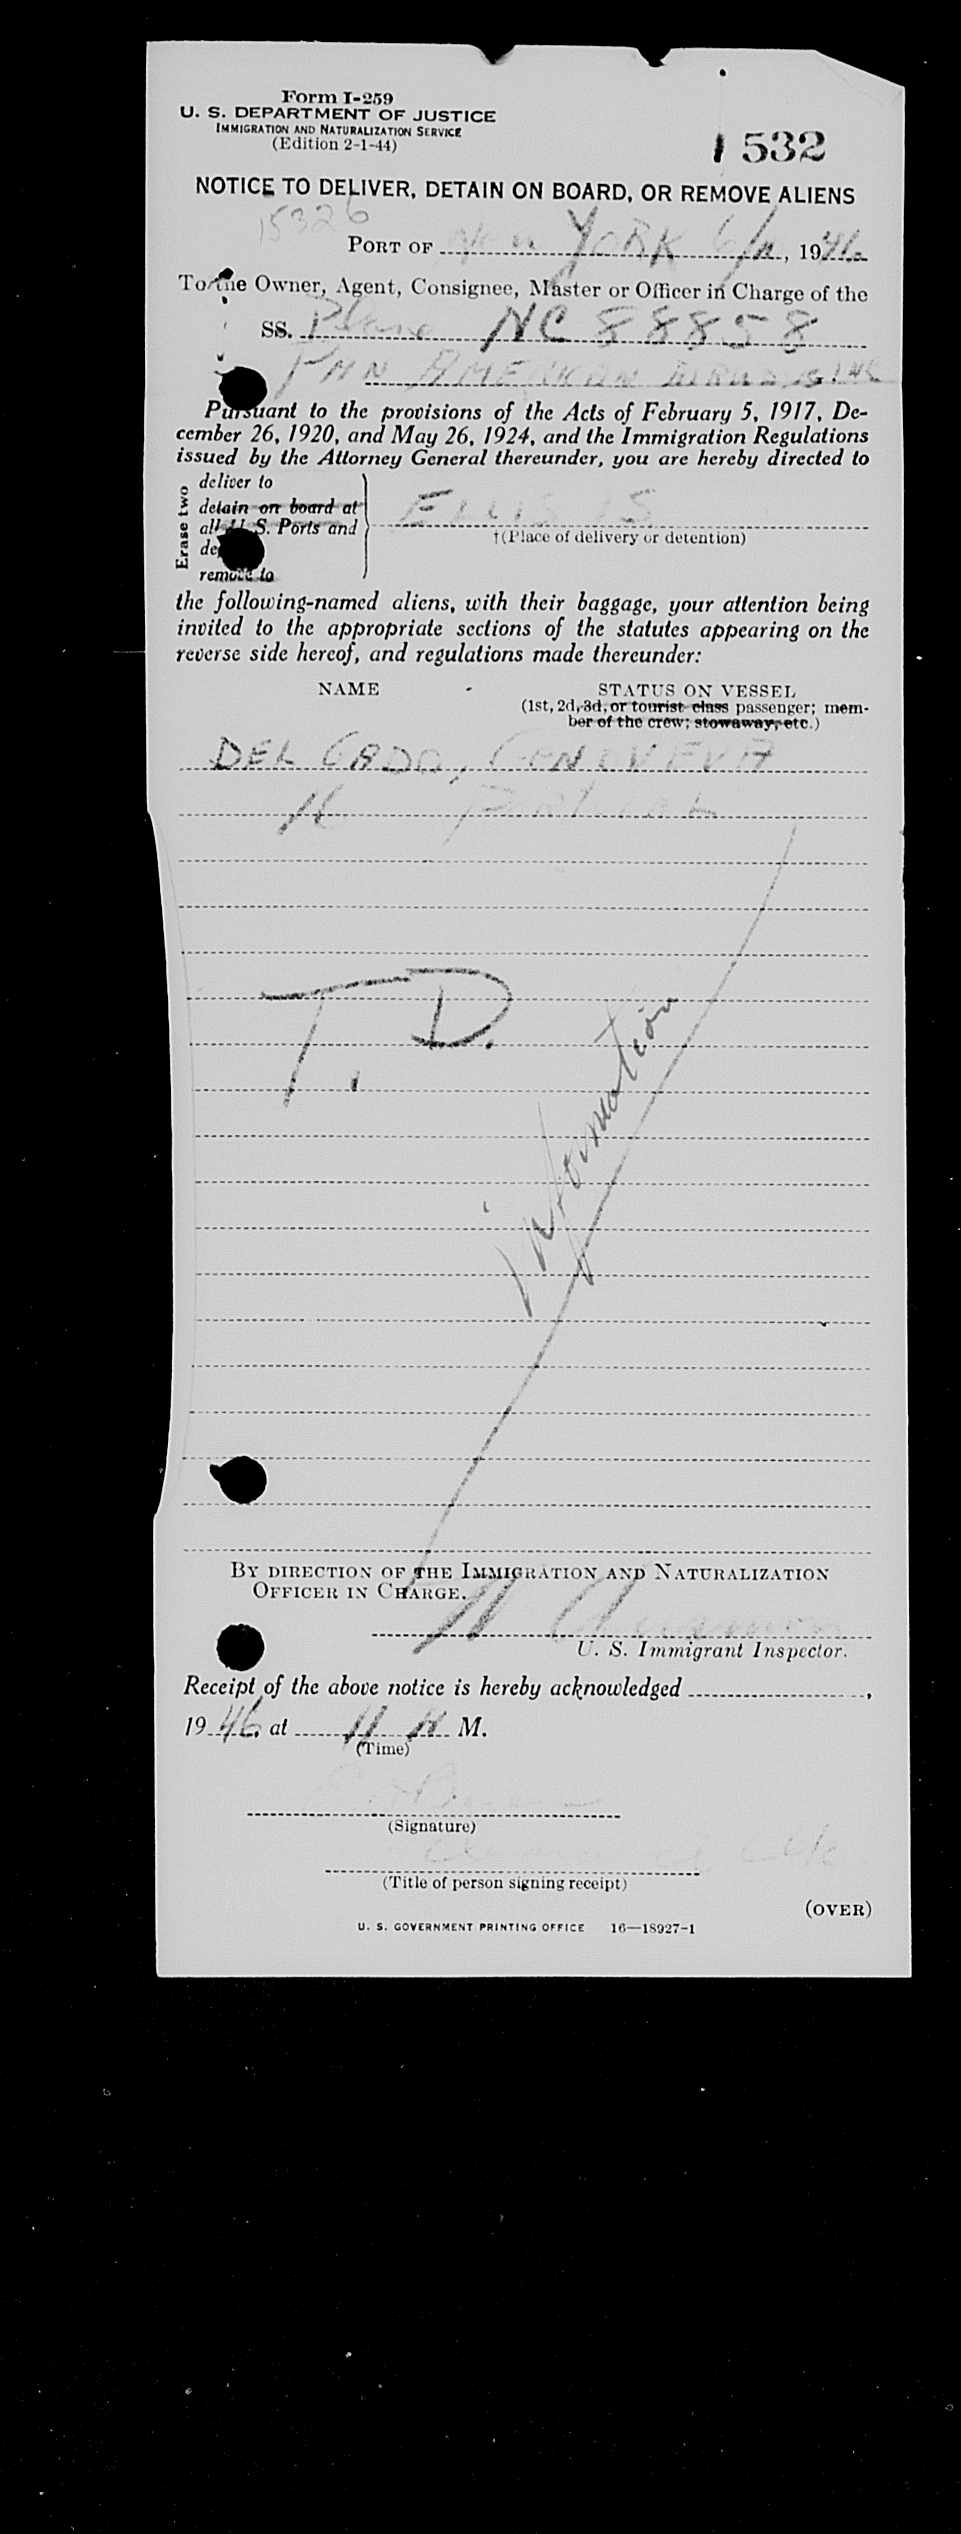 Form I-259
U. S. DEPARTMENT OF JUSTICE
IMMIGRATION AND NATURALIZATION SERVICE
(Edition 2-1-44)
1 532
NOTICE TO DELIVER, DETAIN ON BOARD, OR REMOVE ALIENS
15326
PORT OF New YORK 6/11, 1946
To the Owner, Agent, Consignee, Master or Officer in Charge of the
SS. Plane NC 88858
PAN AMERICAN AIRWAYS INC
Pursuant to the provisions of the Acts of February 5, 1917, De-
cember 26, 1920, and May 26, 1924, and the Immigration Regulations
issued by the Attorney General thereunder, you are hereby directed to
Erase two
deliver to
detain on board at
all U. S. Ports and
remove to
ELLIS IS
†(Place of delivery or detention)
the following-named aliens, with their baggage, your attention being
invited to the appropriate sections of the statutes appearing on the
reverse side hereof, and regulations made thereunder:
NAME
STATUS ON VESSEL
(1st, 2d, 3d, or tourist class passenger; mem-
ber of the crew; stowaway, etc.)
DEL GADO, GENOVEVA
PORTUGAL
T. D.
information
BY DIRECTION OF THE IMMIGRATION AND NATURALIZATION
OFFICER IN CHARGE.
U. S. Immigrant Inspector.
Receipt of the above notice is hereby acknowledged
1946, at 11 A M.
(Time)
(Signature)
(Title of person signing receipt)
(OVER)
U. S. GOVERNMENT PRINTING OFFICE 16—18927-1